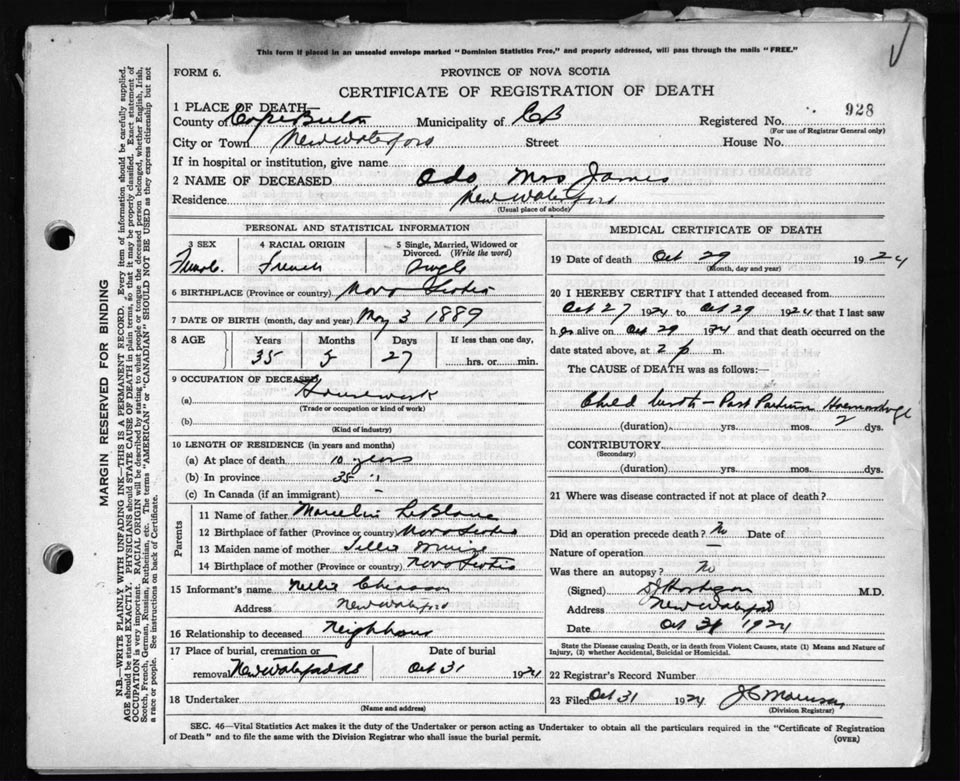 This form if placed in an unsealed envelope marked "Dominion Statistics Free," and properly addressed, will pass through the mails "FREE."
FORM 6.
PROVINCE OF NOVA SCOTIA
CERTIFICATE OF REGISTRATION OF DEATH
928
1 PLACE OF DEATH—
County of Cape Breton Municipality of CB Registered No.
(For use of Registrar General only)
City or Town New Waterford Street House No.
If in hospital or institution, give name
2 NAME OF DECEASED Odo Mrs James
Residence New Waterford
(Usual place of abode)
PERSONAL AND STATISTICAL INFORMATION
3 SEX 4 RACIAL ORIGIN 5 Single, Married, Widowed or Divorced. (Write the word)
Female French Single
6 BIRTHPLACE (Province or country) Nova Scotia
7 DATE OF BIRTH (month, day and year) May 3 1889
8 AGE Years Months Days If less than one day,
35 5 27 hrs. or min.
9 OCCUPATION OF DECEASED
(a) Housework
(Trade or occupation or kind of work)
(b)
(Kind of industry)
10 LENGTH OF RESIDENCE (in years and months)
(a) At place of death 10 years
(b) In province 35 "
(c) In Canada (if an immigrant) –
Parents
11 Name of father Marcelin LeBlanc
12 Birthplace of father (Province or country) Nova Scotia
13 Maiden name of mother
14 Birthplace of mother (Province or country) Nova Scotia
15 Informant's name Nellie Chiasson
Address New Waterford
16 Relationship to deceased Neighbour
17 Place of burial, cremation or removal Date of burial
New Waterford NS Oct 31 1924
18 Undertaker
(Name and address)
MEDICAL CERTIFICATE OF DEATH
19 Date of death Oct 29 1924
(Month, day and year)
20 I HEREBY CERTIFY that I attended deceased from
Oct 27 1924 to Oct 29 1924 that I last saw
h er alive on Oct 29 1924 and that death occurred on
date stated above, at 2 p m.
The CAUSE of DEATH was as follows:—
Child birth – Post Partum Haemorrhage
(duration) yrs. mos. 2 dys.
CONTRIBUTORY
(Secondary)
(duration) yrs. mos. dys.
21 Where was disease contracted if not at place of death?
Did an operation precede death? No Date of
Nature of operation –
Was there an autopsy? No
(Signed) M.D.
Address New Waterford
Date Oct 31 1924
State the Disease causing Death, or in death from Violent Causes, state (1) Means and Nature of Injury, (2) whether Accidental, Suicidal or Homicidal.
22 Registrar's Record Number
23 Filed Oct 31 1924
(Division Registrar)
SEC. 46—Vital Statistics Act makes it the duty of the Undertaker or person acting as Undertaker to obtain all the particulars required in the "Certificate of Registration
of Death" and to file the same with the Division Registrar who shall issue the burial permit.
(OVER)
MARGIN RESERVED FOR BINDING
N.B.—WRITE PLAINLY WITH UNFADING INK—THIS IS A PERMANENT RECORD. Every item of information should be carefully supplied.
AGE should be stated EXACTLY. PHYSICIANS should STATE CAUSE OF DEATH in plain terms, so that it may be properly classified. Exact statement of
OCCUPATION is very important. RACIAL ORIGIN will be described by stating to what people or tongue the deceased person belonged, whether English, Irish,
Scotch, French, German, Russian, Ruthenian, etc. The terms "AMERICAN" or "CANADIAN" SHOULD NOT BE USED as they express citizenship but not
a race or people. See instructions on back of Certificate.